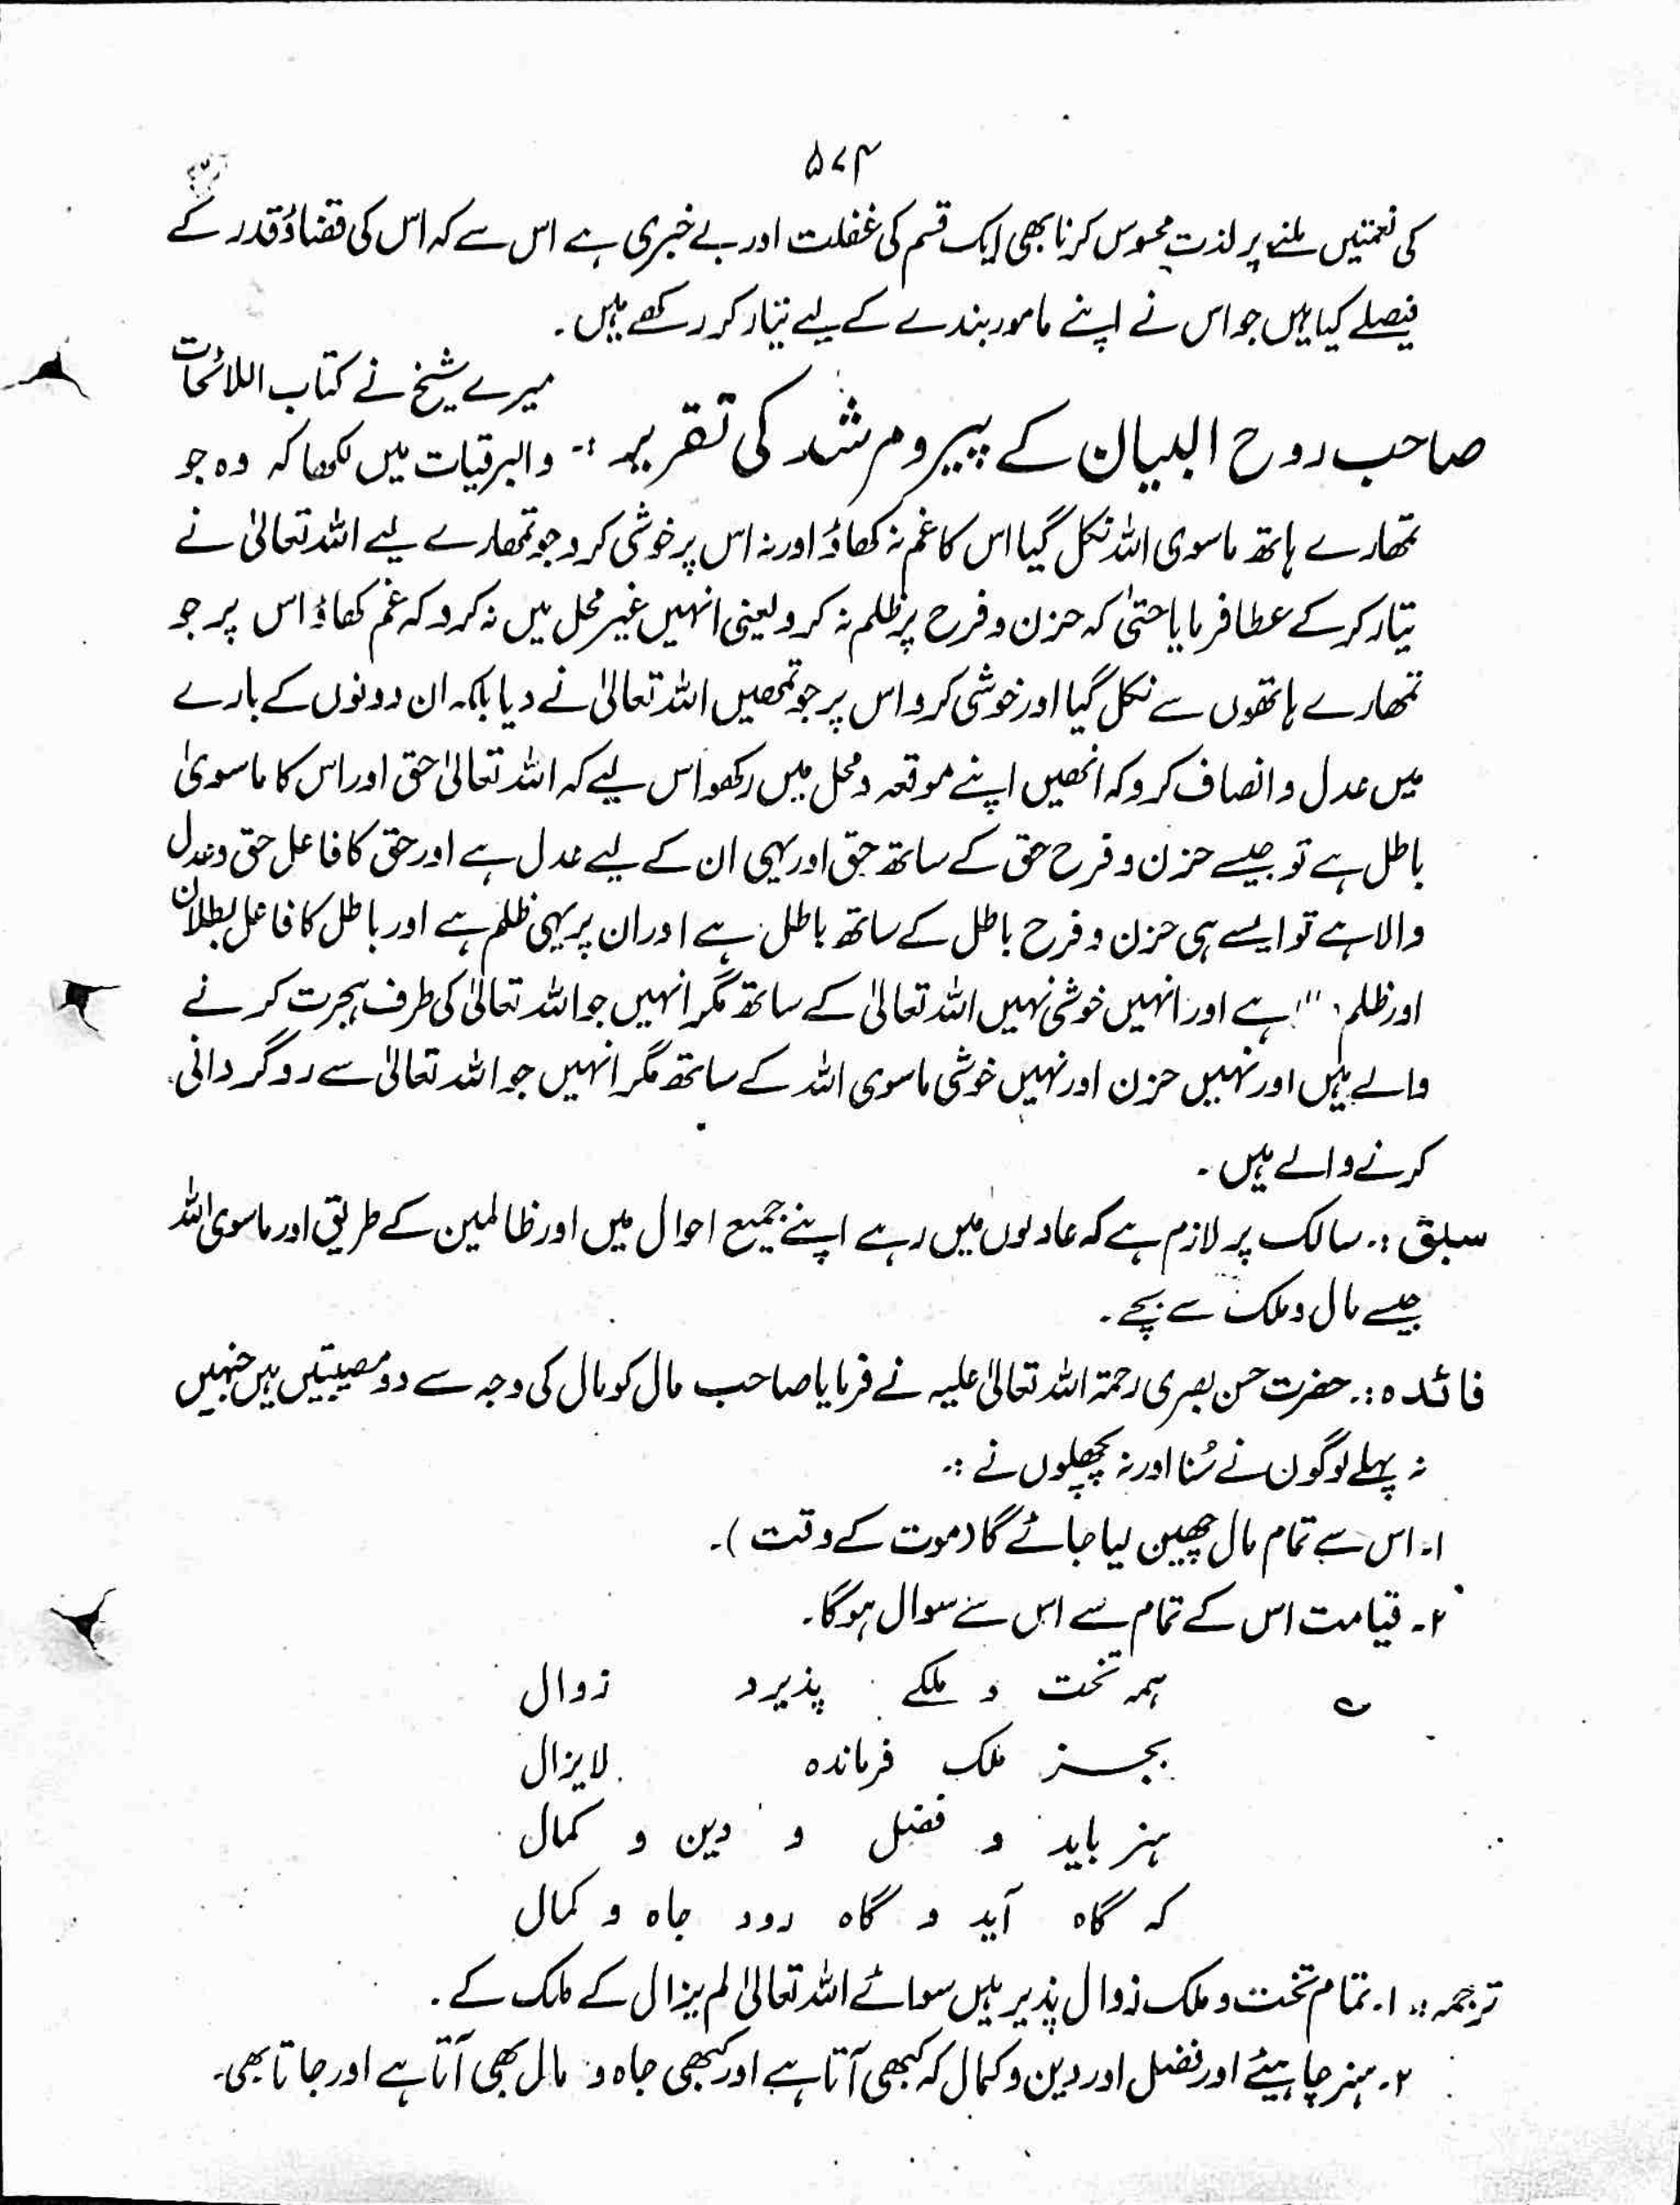 ۵۷۴
کی نعمتیں ملنے پر لذت محسوس کرنا بھی ایک قسم کی غفلت اور بے خبری ہے اس سے کہ اس کی قضاؤ قدر کے
فیصلے کیا ہیں جو اس نے اپنے مامور بندے کے لیے تیار کر رکھے ہیں۔
صاحب روح البیان کے پیر و مرشد کی تقریر :- میرے شیخ نے کتاب اللائحات
والبرقیات میں لکھا کہ وہ جو
تمھارے ہاتھ ماسوی اللہ نکل گیا اس کا غم نہ کھاؤ اور نہ اس پر خوشی کرو جو تمھارے لیے اللہ تعالیٰ نے
تیار کر کے عطا فرمایا حتیٰ کہ حزن و فرح پر ظلم نہ کرو یعنی انہیں غیر محل میں نہ کرو کہ غم کھاؤ اس پر جو
تمھارے ہاتھوں سے نکل گیا اور خوشی کرو اس پر جو تمھیں اللہ تعالیٰ نے دیا بلکہ ان دونوں کے بارے
میں عدل و انصاف کرو کہ انھیں اپنے موقعہ و محل میں رکھو اس لیے کہ اللہ تعالیٰ حق اور اس کا ماسویٰ
باطل ہے تو جیسے حزن و فرح حق کے ساتھ حق اور یہی ان کے لیے عدل ہے اور حق کا فاعل حق و عدل
والا ہے تو ایسے ہی حزن و فرح باطل کے ساتھ باطل ہے اور ان پر یہی ظلم ہے اور باطل کا فاعل بطلان
اور ظلم ہے اور انہیں خوشی نہیں اللہ تعالیٰ کے ساتھ مگر انہیں جو اللہ تعالیٰ کی طرف ہجرت کرنے
والے ہیں اور نہیں حزن اور نہیں خوشی ماسوی اللہ کے ساتھ مگر انہیں جو اللہ تعالیٰ سے روگردانی
کرنے والے ہیں۔
سبق :۔ سالک پر لازم ہے کہ عادلوں میں رہے اپنے جمیع احوال میں اور ظالمین کے طریق اور ماسوی اللہ
جیسے مال و ملک سے بچے۔
فائدہ :۔ حضرت حسن بصری رحمۃ اللہ تعالیٰ علیہ نے فرمایا صاحب مال کو مال کی وجہ سے دو مصیبتیں ہیں جنہیں
نہ پہلے لوگوں نے سُنا اور نہ پچھلوں نے :۔
۱۔ اس سے تمام مال چھین لیا جائے گا (موت کے وقت)۔
۲۔ قیامت اس کے تمام سے اس سے سوال ہوگا۔
ہمہ تخت و ملکے پذیرد زوال
بجز ملک فرماندہ لایزال
ہنر باید و فضل و دین و کمال
کہ گاہ آید و گاہ رود جاہ و کمال
ترجمہ :۔ ۱۔ تمام تخت و ملک زوال پذیر ہیں سوائے اللہ تعالیٰ لم یزال کے ملک کے۔
۲۔ ہنر چاہیئے اور فضل اور دین و کمال کہ کبھی آتا ہے اور کبھی جاہ و مال بھی آتا ہے اور جاتا بھی۔